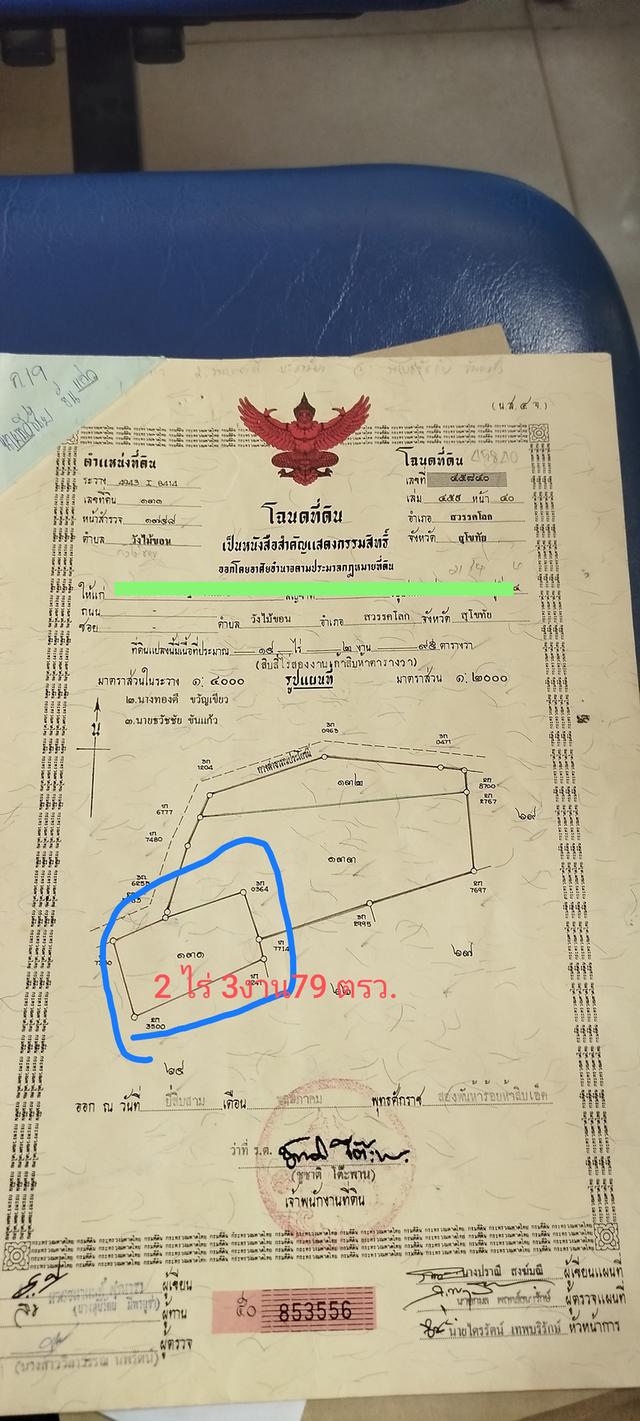 (น.ส.๔ จ.)
ตำแหน่งที่ดิน
ระวาง 4943 I 6414
เลขที่ดิน ๑๓๑
หน้าสำรวจ ๑๗๙๘
ตำบล วังไม้ขอน
โฉนดที่ดิน
เลขที่ ๔๕๘๔๐
เล่ม ๔๕๙ หน้า ๔๐
อำเภอ สวรรคโลก
จังหวัด สุโขทัย
โฉนดที่ดิน
เป็นหนังสือสำคัญแสดงกรรมสิทธิ์
ออกโดยอาศัยอำนาจตามประมวลกฎหมายที่ดิน
ให้แก่
ถนน -
ซอย - ตำบล วังไม้ขอน อำเภอ สวรรคโลก จังหวัด สุโขทัย
ที่ดินแปลงนี้มีเนื้อที่ประมาณ ๑๔ ไร่ ๒ งาน ๙๕ ตารางวา
(สิบสี่ไร่สองงานเก้าสิบห้าตารางวา)
มาตราส่วนในระวาง ๑: ๔๐๐๐ รูปแผนที่ มาตราส่วน ๑: ๒๐๐๐
๒.นางทองดี ขวัญเขียว
๓.นายธวัชชัย ขันแก้ว
น
ทางสาธารณประโยชน์
3ก
0963
3ก
0471
3ก
1204
๑๓๒
2ก
8700
2ก
2767
๒๙
1ก
6777
1ก
7480
๑๓๓
3ก
0364
2ก
7697
3ก
2995
1ก
7714
๒๗
๑๓๑
2 ไร่ 3งาน79 ตรว.
2ก
3500
๒๘
ออก ณ วันที่ ยี่สิบสาม เดือน พฤษภาคม พุทธศักราช สองพันห้าร้อยห้าสิบเอ็ด
ว่าที่ ร.ต.
(ชูชาติ โต๊ะพาน)
เจ้าพนักงานที่ดิน
ผู้เขียน
ผู้ทาน
ผู้ตรวจ
๕๐ 853556
นางปราณี สงฆ์มณี ผู้เขียนแผนที่
ผู้ตรวจแผนที่
นายไตรรัตน์ เทพบริรักษ์ หัวหน้าการ